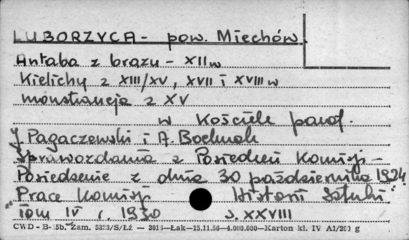 LUBORZYCA - pow. Miechów
Antaba z brązu - XII w
Kielichy z XIII/XV, XVII i XVIII w
monstrancja z XV
w Kościele paraf.
J. Pagaczewski i A. Bochnak
Sprawozdania z Posiedzeń Komisji -
Posiedzenie z dnia 30 października 1924
"Prace Komisji Historii Sztuki"
Tom IV r. 1930 s. XXVIII
CWD - B- Zam. Łak-15.11.56-4.000.000-Karton kl. IV A1/200 g